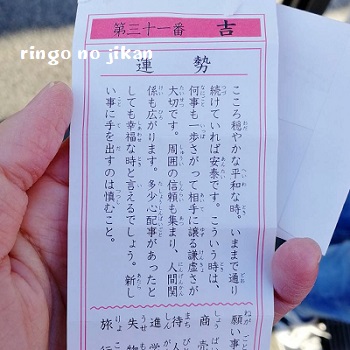 ringo no jikan
第三十一番 吉
運勢
こころ穏やかな平和な時。いままで通り
続けていれば安泰です。こういう時は、
何事も一歩さがって相手に譲る謙虚さが
大切です。周囲の信頼も集まり、人間関
係も広がります。多少心配事があったと
しても幸福な時と言えるでしょう。新し
い事に手を出すのは慎むこと。
願い事
商売
待人
進学
失物
旅行